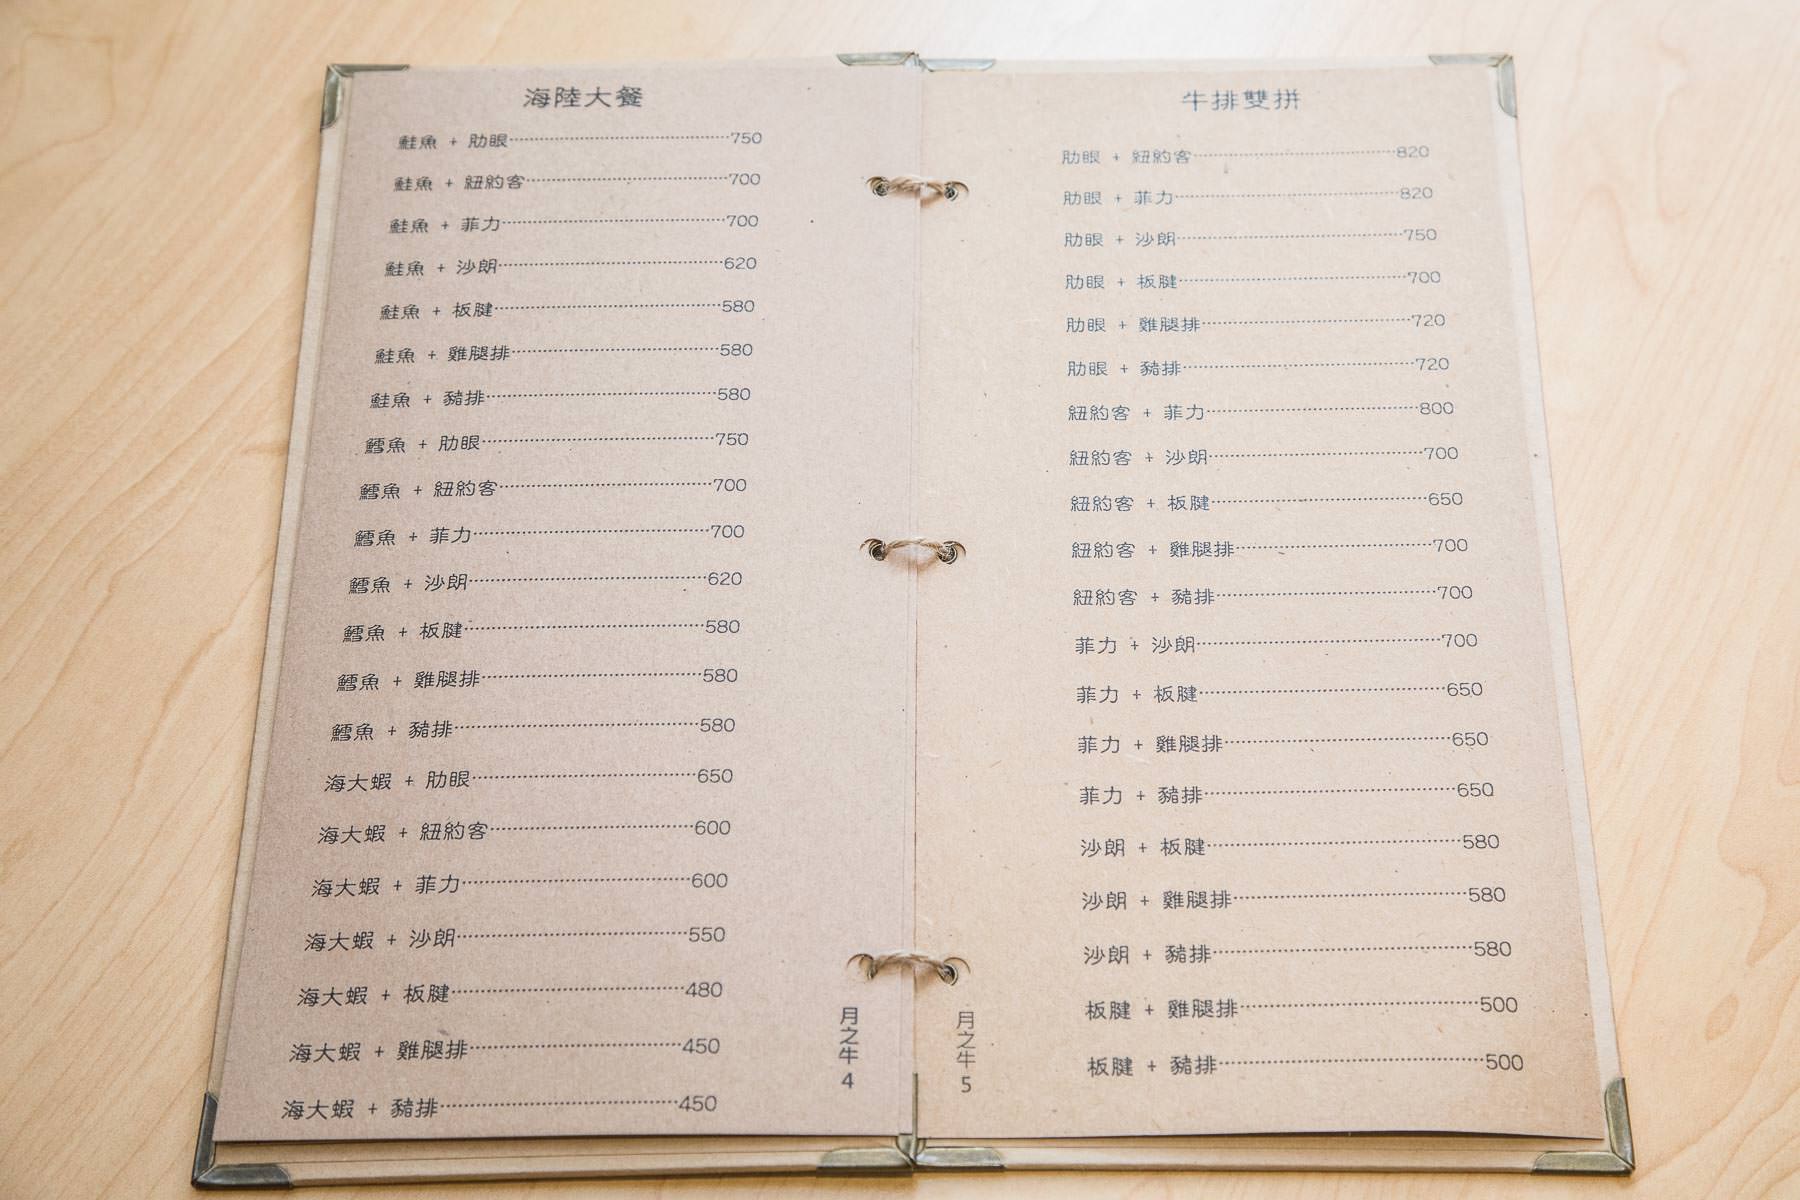 海陸大餐
鮭魚 + 肋眼 750
鮭魚 + 紐約客 700
鮭魚 + 菲力 700
鮭魚 + 沙朗 620
鮭魚 + 板腱 580
鮭魚 + 雞腿排 580
鮭魚 + 豬排 580
鱈魚 + 肋眼 750
鱈魚 + 紐約客 700
鱈魚 + 菲力 700
鱈魚 + 沙朗 620
鱈魚 + 板腱 580
鱈魚 + 雞腿排 580
鱈魚 + 豬排 580
海大蝦 + 肋眼 650
海大蝦 + 紐約客 600
海大蝦 + 菲力 600
海大蝦 + 沙朗 550
海大蝦 + 板腱 480
海大蝦 + 雞腿排 450
海大蝦 + 豬排 450
月之牛 4
牛排雙拼
肋眼 + 紐約客 820
肋眼 + 菲力 820
肋眼 + 沙朗 750
肋眼 + 板腱 700
肋眼 + 雞腿排 720
肋眼 + 豬排 720
紐約客 + 菲力 800
紐約客 + 沙朗 700
紐約客 + 板腱 650
紐約客 + 雞腿排 700
紐約客 + 豬排 700
菲力 + 沙朗 700
菲力 + 板腱 650
菲力 + 雞腿排 650
菲力 + 豬排 650
沙朗 + 板腱 580
沙朗 + 雞腿排 580
沙朗 + 豬排 580
板腱 + 雞腿排 500
板腱 + 豬排 500
月之牛 5